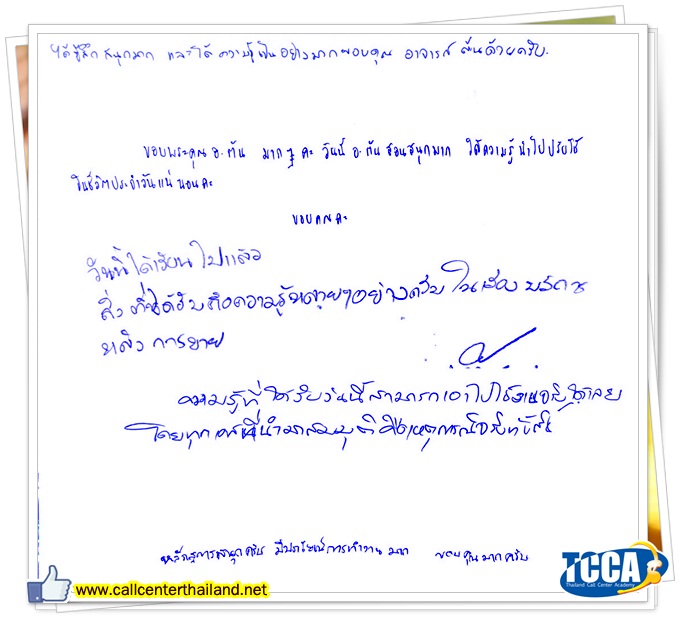 ได้รู้สึก สนุกมาก และได้ ความรู้เป็นอย่างมากขอบคุณ อาจารย์ ด้วยครับ.
ขอบพระคุณ อ.ต้น มาก ๆ คะ วันนี้ อ.ต้น สอนสนุกมาก ได้ความรู้ นำไปปรับใช้
ในชีวิตประจำวันแน่นอนคะ
ขอบคุณคะ
วันนี้ได้เรียนไปแล้ว
สิ่งที่ได้รับคือความรู้หลายๆอย่างครับ ในเรื่อง บริการ
หลังการขาย
ความรู้ที่ได้รับวันนี้สามารถเอาไปใช้งานจริงได้เลย
โดยทุก นำมาสมมุติ เหตุการณ์
หลักสูตรการสนุกครับ มีประโยชน์การทำงานมาก ขอบคุณมากครับ
www.callcenterthailand.net
TCCA
Thailand Call Center Academy